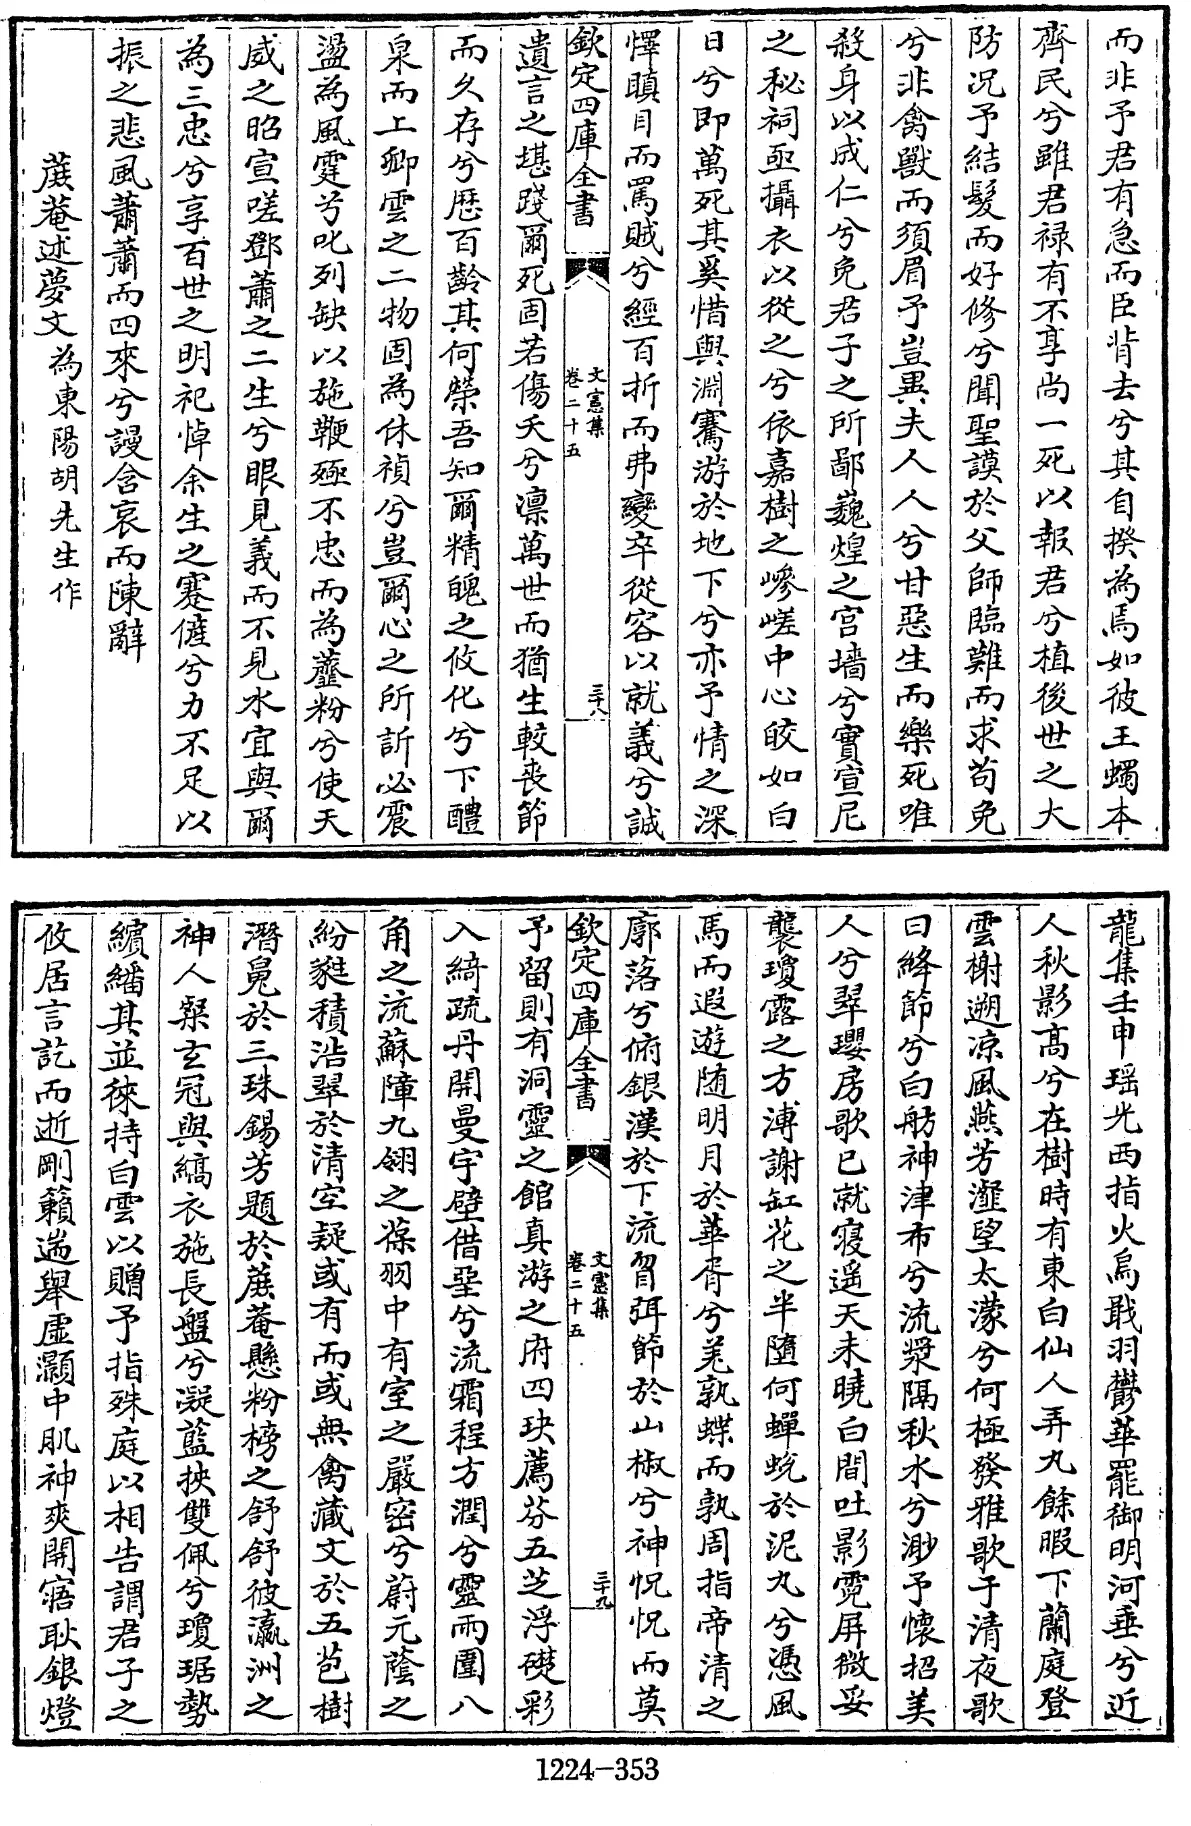 而非予君有急而臣背去兮其自揆為焉如彼王蠋本
齊民兮雖君禄有不享尚一死以報君兮植後世之大
防况予結髮而好修兮聞聖謨於父師臨難而求茍免
兮非禽獸而須眉予豈異夫人人兮甘惡生而樂死唯
殺身以成仁兮免君子之所鄙巍煌之宫墻兮實宣尼
之秘祠亟攝衣以從之兮依嘉樹之嵾嵯中心皎如白
日兮即萬死其奚惜與淵騫游於地下兮亦予情之深
懌瞋目而罵賊兮經百折而弗變卒從容以就義兮誠
欽定四庫全書
文憲集
卷二十五
三十八
遺言之堪踐爾死固若傷夭兮凛萬世而猶生較丧節
而久存兮歴百齡其何榮吾知爾精魄之攸化兮下醴
泉而上卿雲之二物固為休禎兮豈爾心之所訢必震
盪為風霆兮叱列缺以施鞭殛不忠而為虀粉兮使天
威之昭宣嗟鄧蕭之二生兮眼見義而不見水宜與爾
為三忠兮享百世之明祀悼余生之蹇傕兮力不足以
振之悲風蕭蕭而四來兮謾含哀而陳辭
蔗菴述夢文為東陽胡先生作
龍集壬申瑶光西指火烏戢羽鬱華罷御明河垂兮近
人秋影高兮在樹時有東白仙人弄丸餘暇下蘭庭登
雲榭遡凉風燕芳瀣望太濛兮何極發雅歌于清夜歌
曰絳節兮白舫神津布兮流漿隔秋水兮渺予懷招美
人兮翠瓔房歌已就寝遥天未曉白間吐影霓屏微妥
襲瓊露之方溥謝缸花之半墮何蟬蛻於泥丸兮憑風
馬而遐遊随明月於華胥兮羌孰蝶而孰周指帝清之
廓落兮俯銀漢於下流曶弭節於山椒兮神怳怳而莫
欽定四庫全書
文憲集
卷二十五
三十九
予留則有洞靈之館真游之府四玦薦芬五芝浮礎彩
入綺疏丹開曼宇壁借堊兮流霜程方潤兮靈雨圍八
角之流蘇障九翎之葆羽中有室之嚴密兮蔚元蔭之
紛毵積浩翠於清空疑或有而或無禽藏文於五芑樹
潛舄於三珠錫芳題於蔗菴懸粉榜之舒舒彼瀛洲之
神人粲玄冠與縞衣施長盤兮凝藍挾雙佩兮瓊琚勢
繽繙其並徠持白雲以贈予指殊庭以相告謂君子之
攸居言訖而逝剛籟耑舉虚灝中肌神爽開寤耿銀燈
1224-353